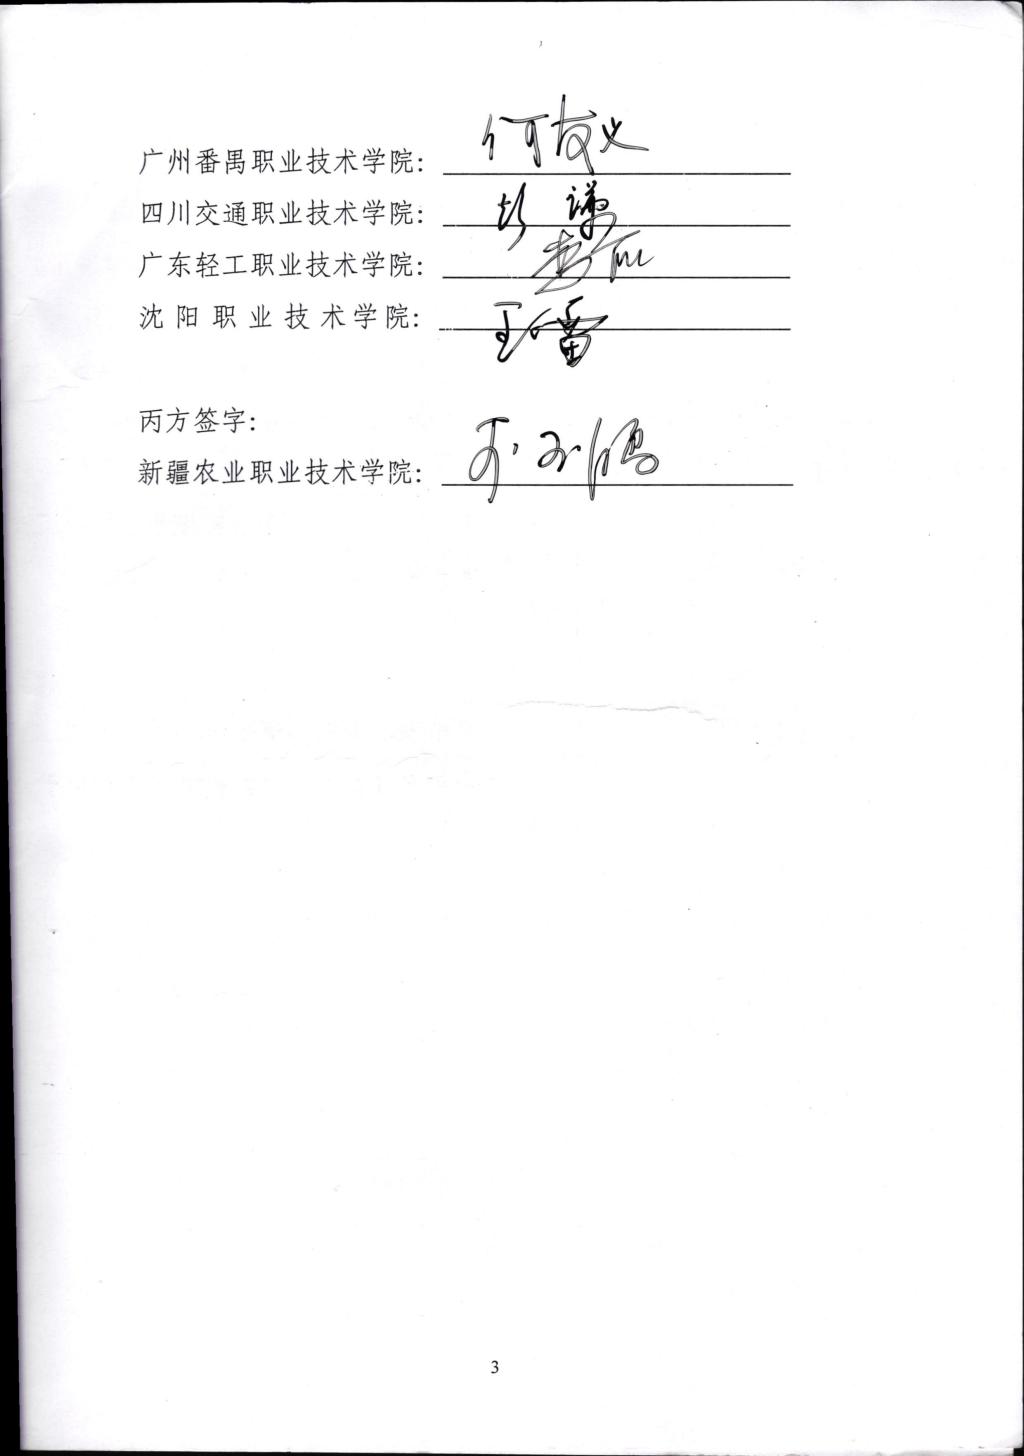 广州番禺职业技术学院: 何友义
四川交通职业技术学院: 彭谦
广东轻工职业技术学院:
沈阳职业技术学院: 王
丙方签字:
新疆农业职业技术学院:
3